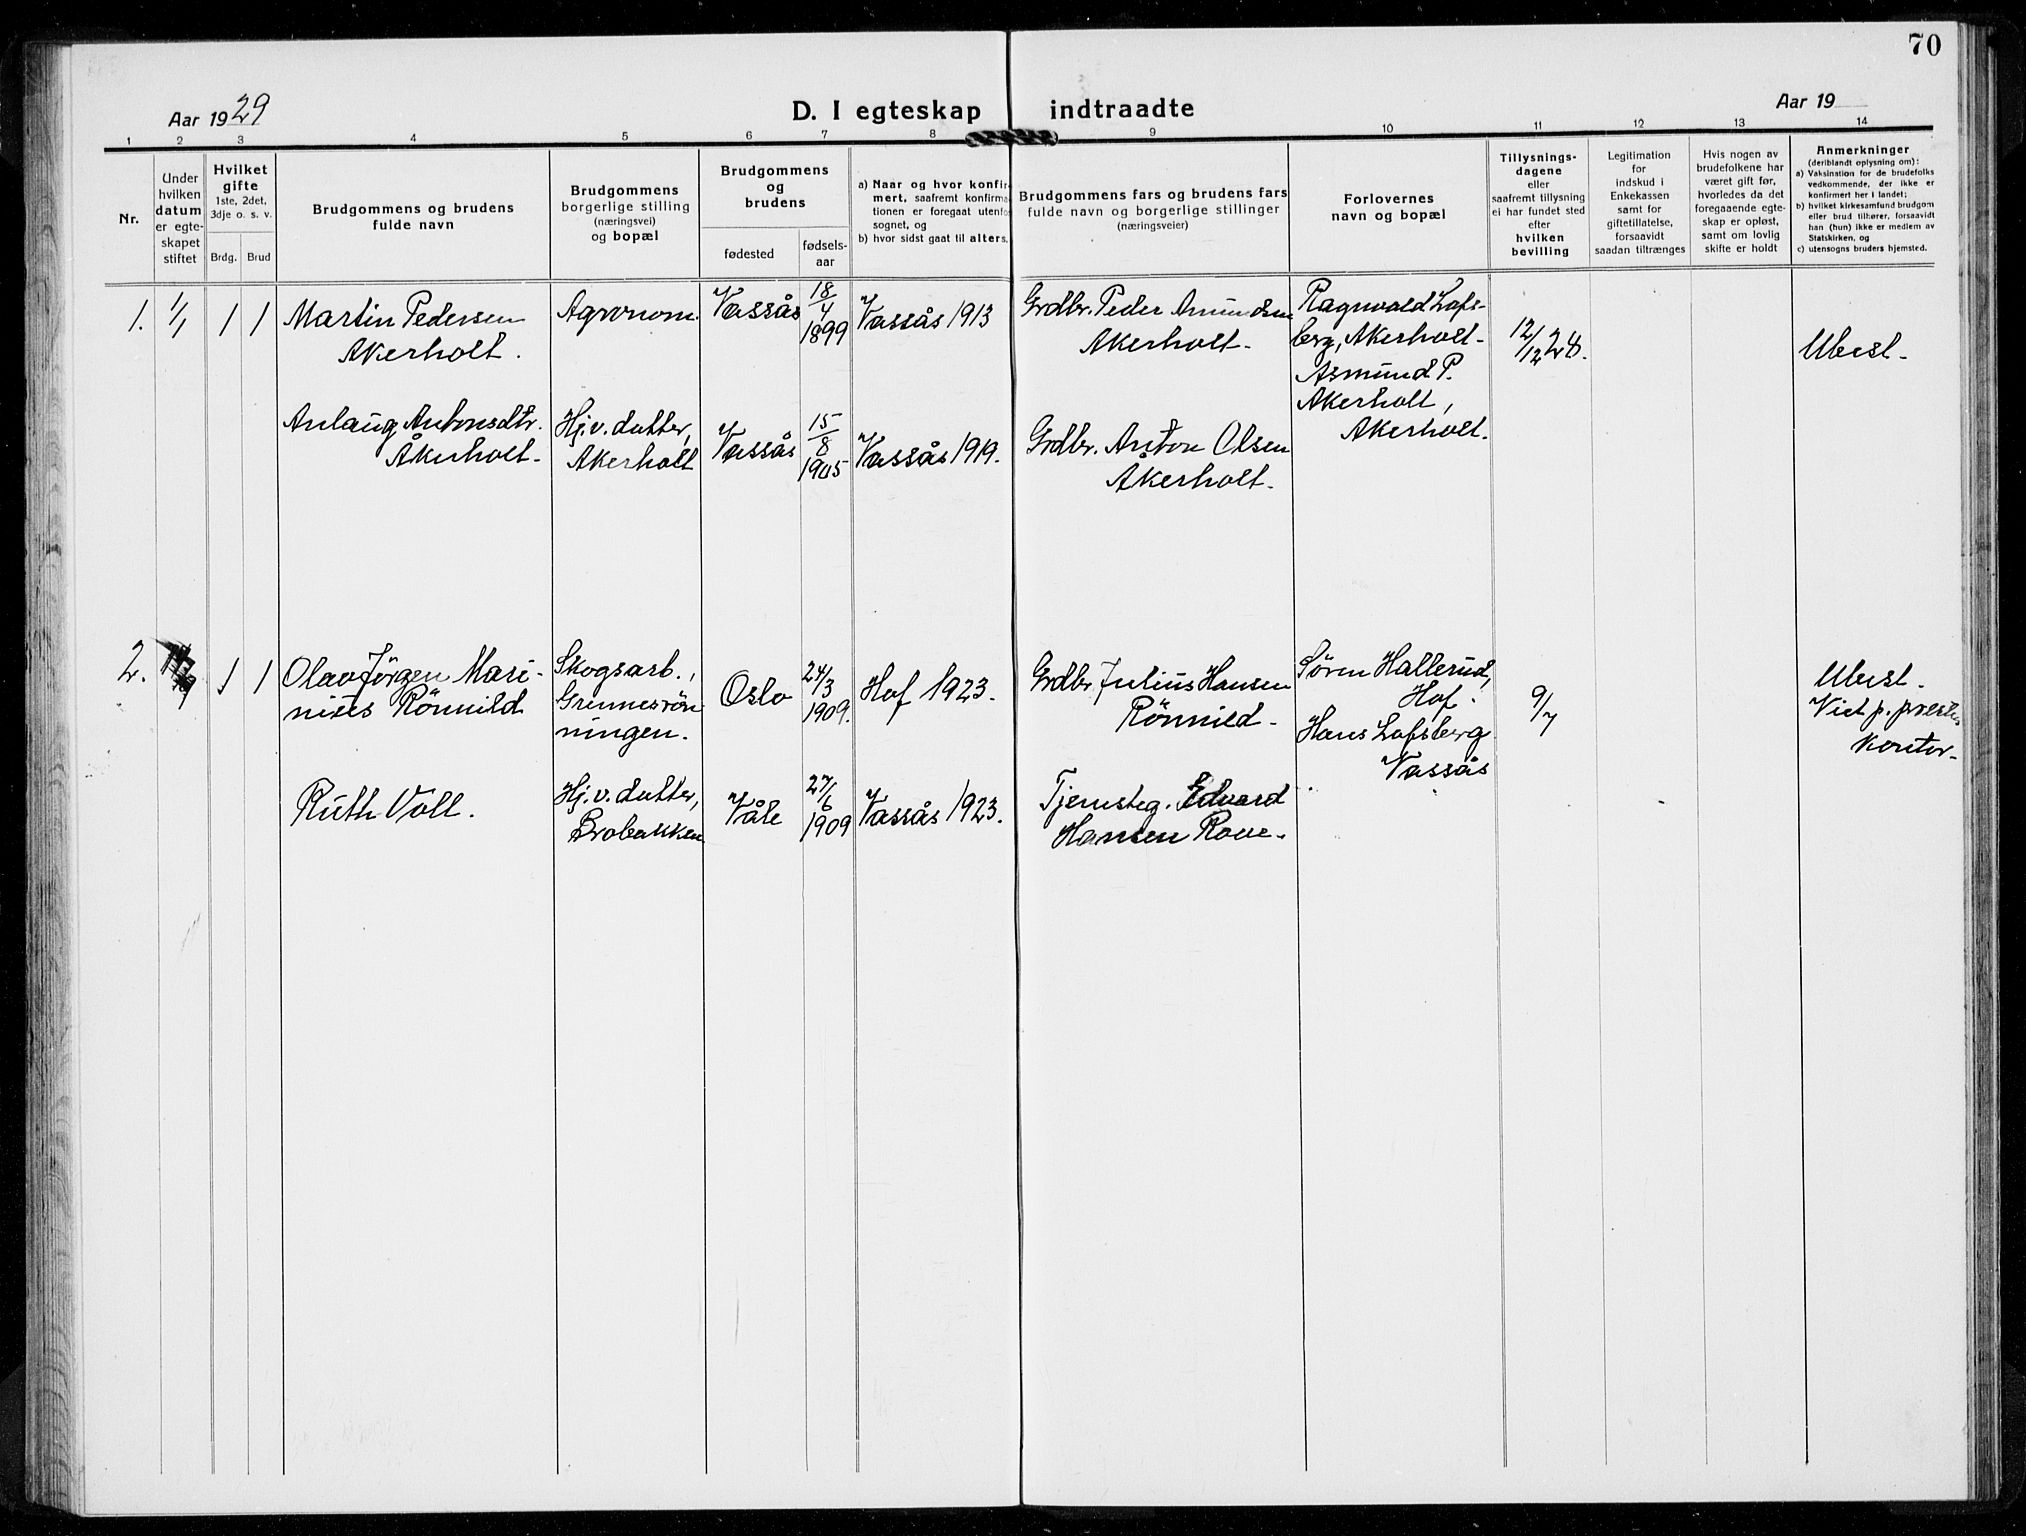 70
Aar 1929
D. I egteskap indtraadte
Aar 19
1 2 3 4 5 6 7 8 9 10 11 12 13 14
Nr.
Under
hvilken
datum
er egte-
skapet
stiftet
Hvilket
gifte
1ste, 2det,
3dje o. s. v.
Brdg. Brud
Brudgommens og brudens
fulde navn
Brudgommens
borgerlige stilling
(næringsvei)
og bopæl
Brudgommens
og
brudens
fødested
fødsels-
aar
a) Naar og hvor konfir-
mert, saafremt konfirma-
tionen er foregaat utenfor
sognet, og
b) hvor sidst gaat til alters.
Brudgommens fars og brudens fars
fulde navn og borgerlige stillinger
(næringsveier)
Forlovernes
navn og bopæl
Tillysnings-
dagene
eller
saafremt tillysning
ei har fundet sted
efter
hvilken
bevilling
Legitimation
for
indskud i
Enkekassen
samt for
giftetillatelse,
forsaavidt
saadan tiltrænges
Hvis nogen av
brudefolkene har
været gift før,
hvorledes da det
foregaaende egte-
skap er opløst,
samt om lovlig
skifte er holdt
Anmerkninger
(deriblandt oplysning om):
a) Vaksination for de brudefolks
vedkommende, der ikke er
konfirmert her i landet;
b) hvilket kirkesamfund brudgom
eller brud tilhører, forsaavidt
han (hun) ikke er medlem av
Statskirken, og
c) utensogns bruders hjemsted.
1.
1/1
1
1
Martin Pedersen
Akerholt.
Agronom.
Vassås
18/4
1899
Vassås 1913
Grdbr. Peder Amundsen
Akerholt.
Ragnvald Lofs-
berg, Akerholt.
Asmund P.
Akerholt,
Akerholt.
12/12 28.
Ubesl.
Anlaug Antonsdtr.
Åkerholt.
Hj.v. datter,
Akerholt
Vassås
15/8
1905
Vassås 1919.
Grdbr. Anton Olsen
Åkerholt.
2.
1
1
Olav Jörgen Mari-
nius Rönnild
Skogsarb.,
Grennesrön
ningen.
Oslo
24/3
1909.
Hof 1923.
Grdbr Julius Hansen
Rönnild.
Søren Hallerud,
Hof.
Hans Lofsberg
Vassås
9/7
Ubesl.
Viet p. prestens
kontor.
Ruth Voll.
Hj.v. datter,
Brobakken
Våle
27/6
1909
Vassås 1923.
Tjenesteg. Edvard
Hansen Rove.